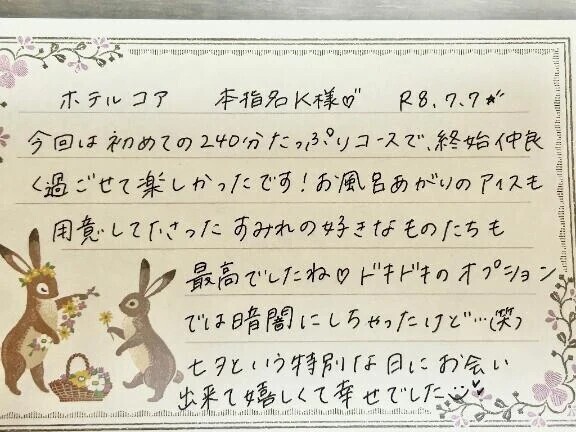 ホテルコア 本指名K様♡ R8.7.7☆
今回は初めての240分たっぷりコースで、終始仲良
く過ごせて楽しかったです!お風呂あがりのアイスも
用意して下さった すみれの好きなものたちも
最高でしたね♡ドキドキのオプション
では暗闇にしちゃったけど…(笑)
七夕という特別な日にお会い
出来て嬉しくて幸せでした